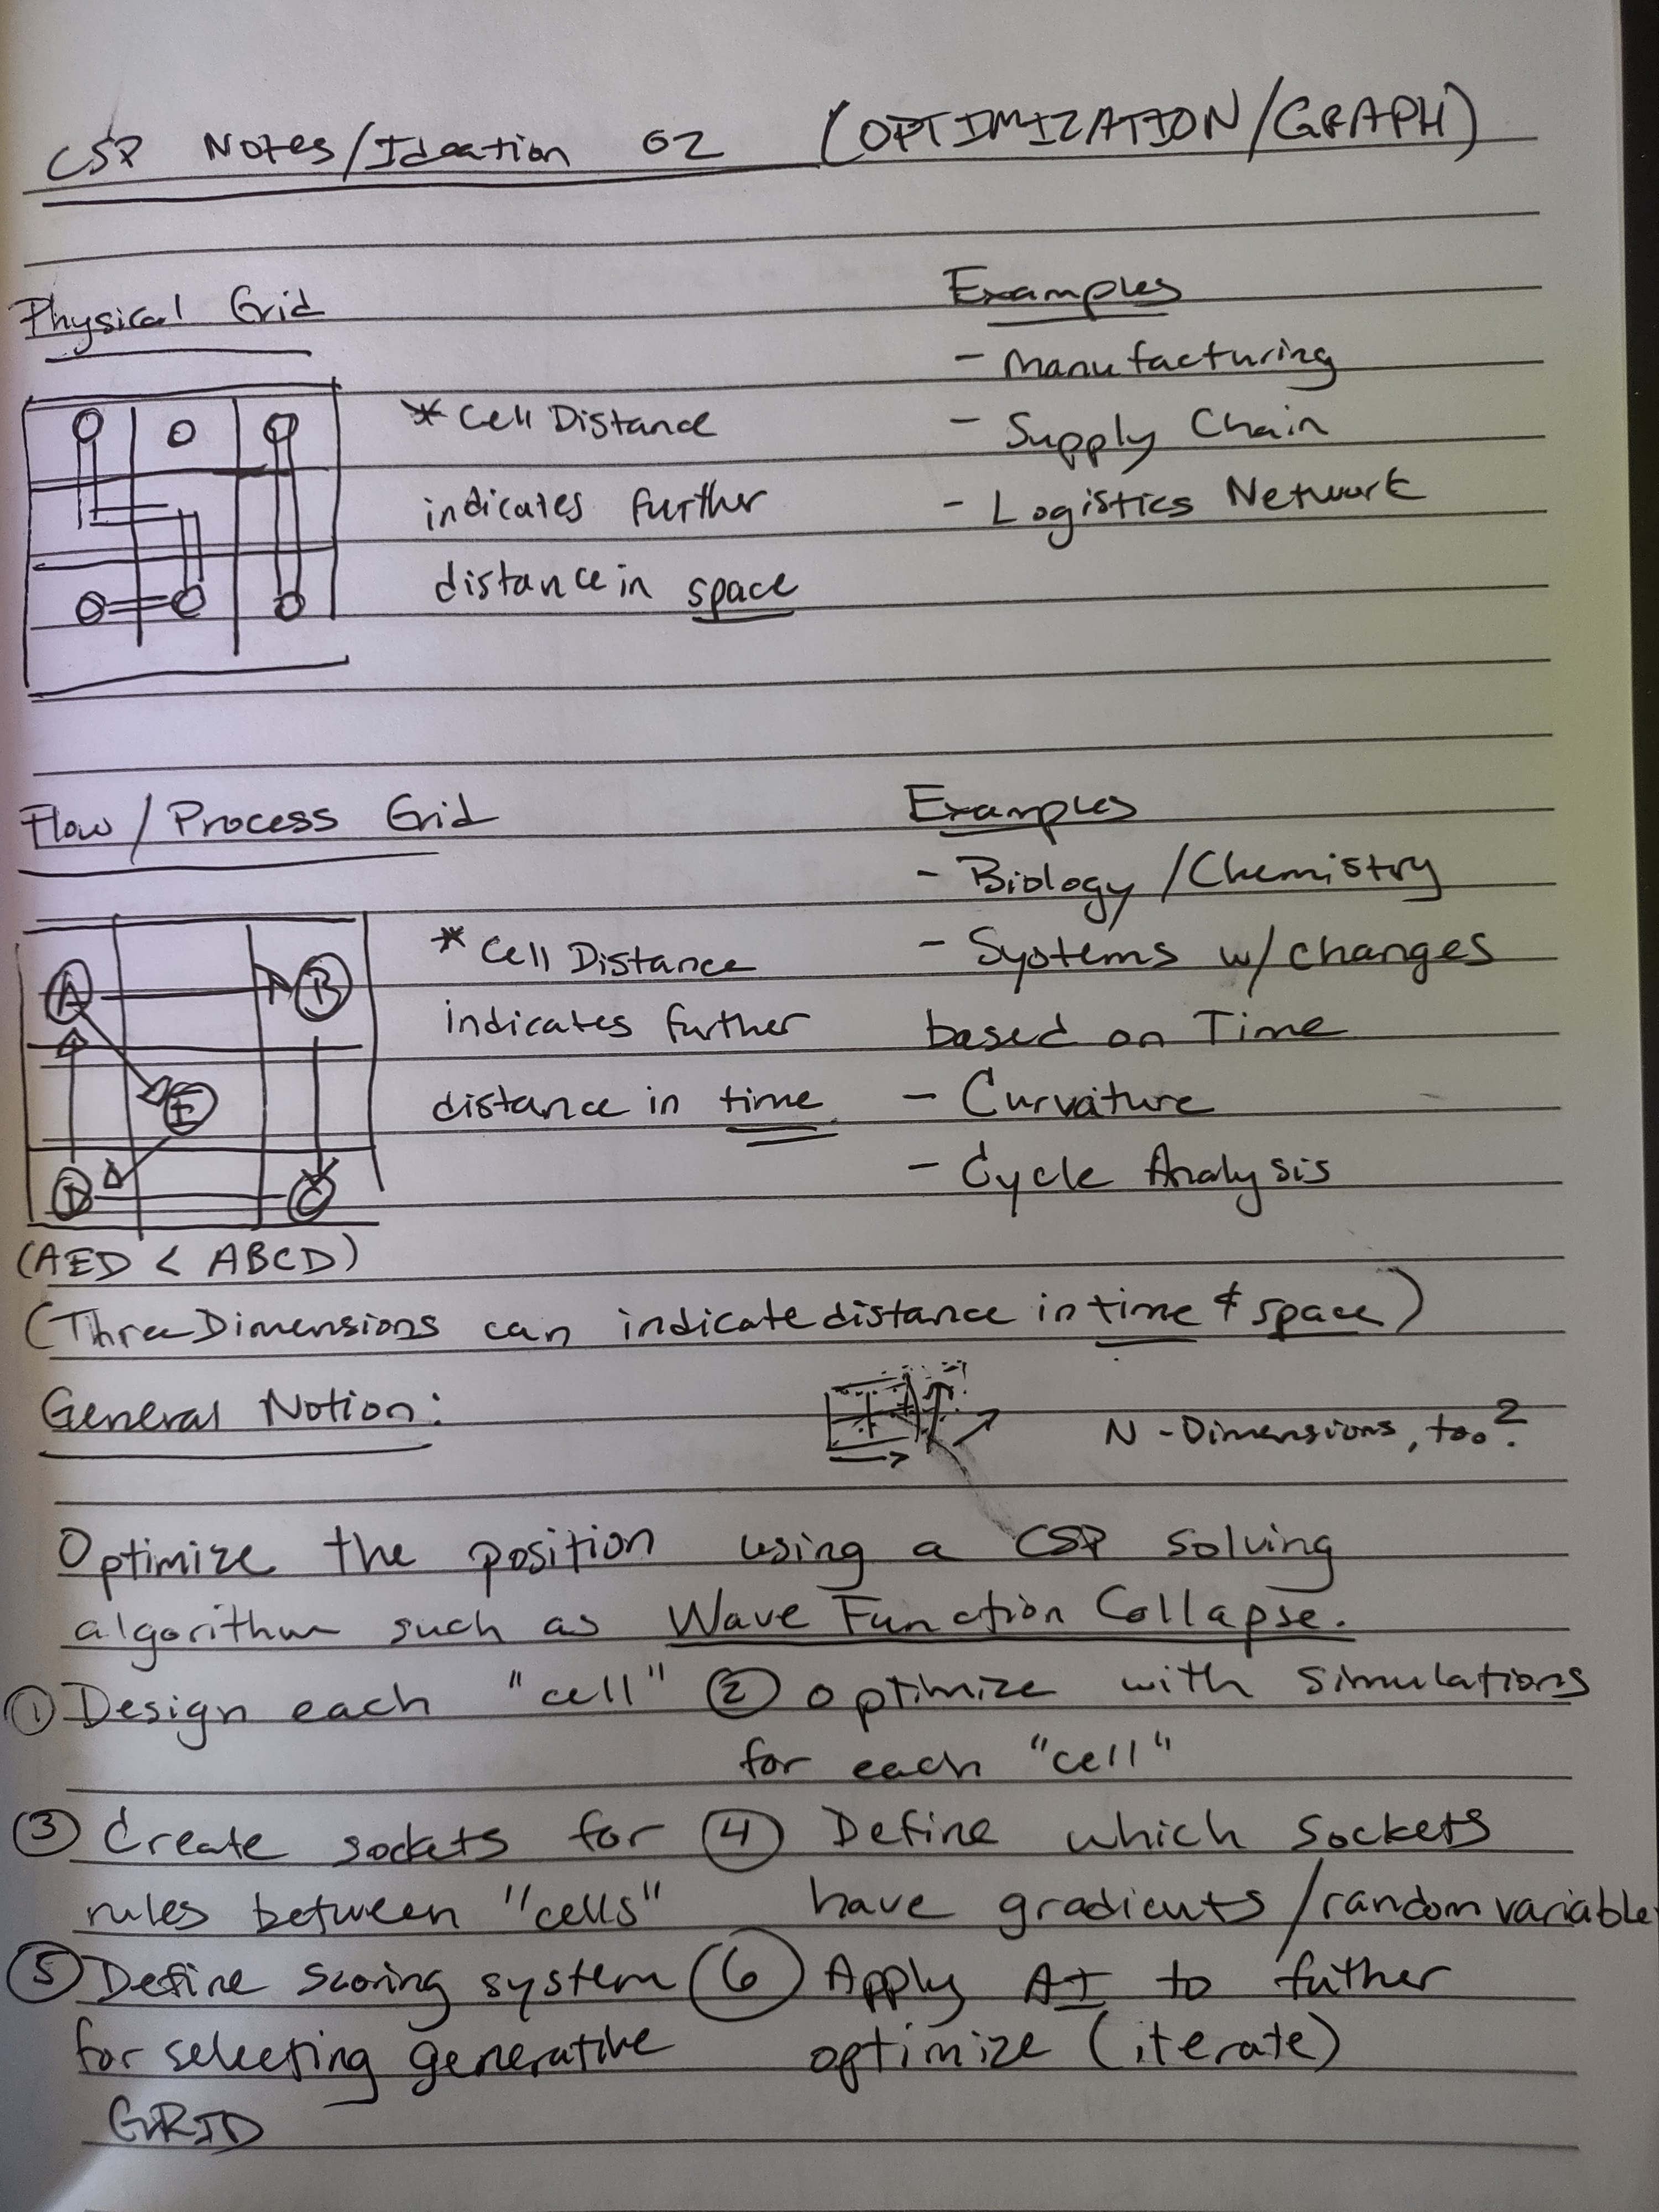 CSP Notes/Ideation 02 (OPTIMIZATION/GRAPH)
Physical Grid
* Cell Distance
indicates further
distance in space
Examples
- Manufacturing
- Supply Chain
- Logistics Network
Flow/Process Grid
A
B
E
D
C
* Cell Distance
indicates further
distance in time
Examples
- Biology/Chemistry
- Systems w/ changes
based on Time
- Curvature
- Cycle Analysis
(AED < ABCD)
(Three Dimensions can indicate distance in time & space)
General Notion:
N-Dimensions, too?
Optimize the position using a CSP solving
algorithm such as Wave Function Collapse.
① Design each "cell"
② optimize with simulations
for each "cell"
③ Create sockets for
rules between "cells"
④ Define which sockets
have gradients/random variable
⑤ Define scoring system
for selecting generative
GRID
⑥ Apply AI to futher
optimize (iterate)